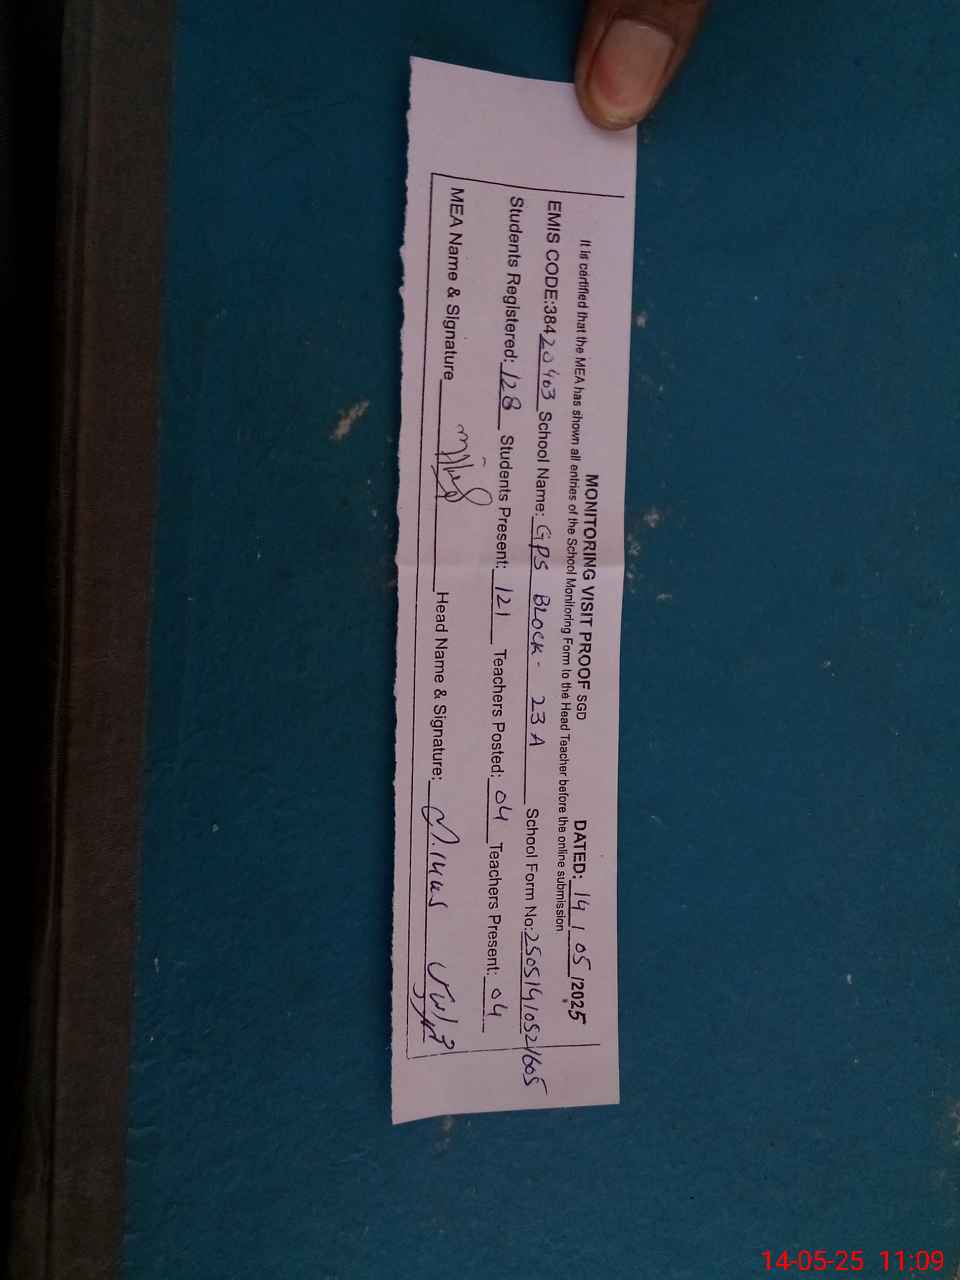 MONITORING VISIT PROOF SGD DATED: 14 / 05 /2025
It is certified that the MEA has shown all entries of the School Monitoring Form to the Head Teacher before the online submission
EMIS CODE:38420403 School Name: GPS BLOCK- 23A School Form No:25051410521605
Students Registered: 128 Students Present: 121 Teachers Posted: 04 Teachers Present: 04
MEA Name & Signature Head Name & Signature:
14-05-25 11:09